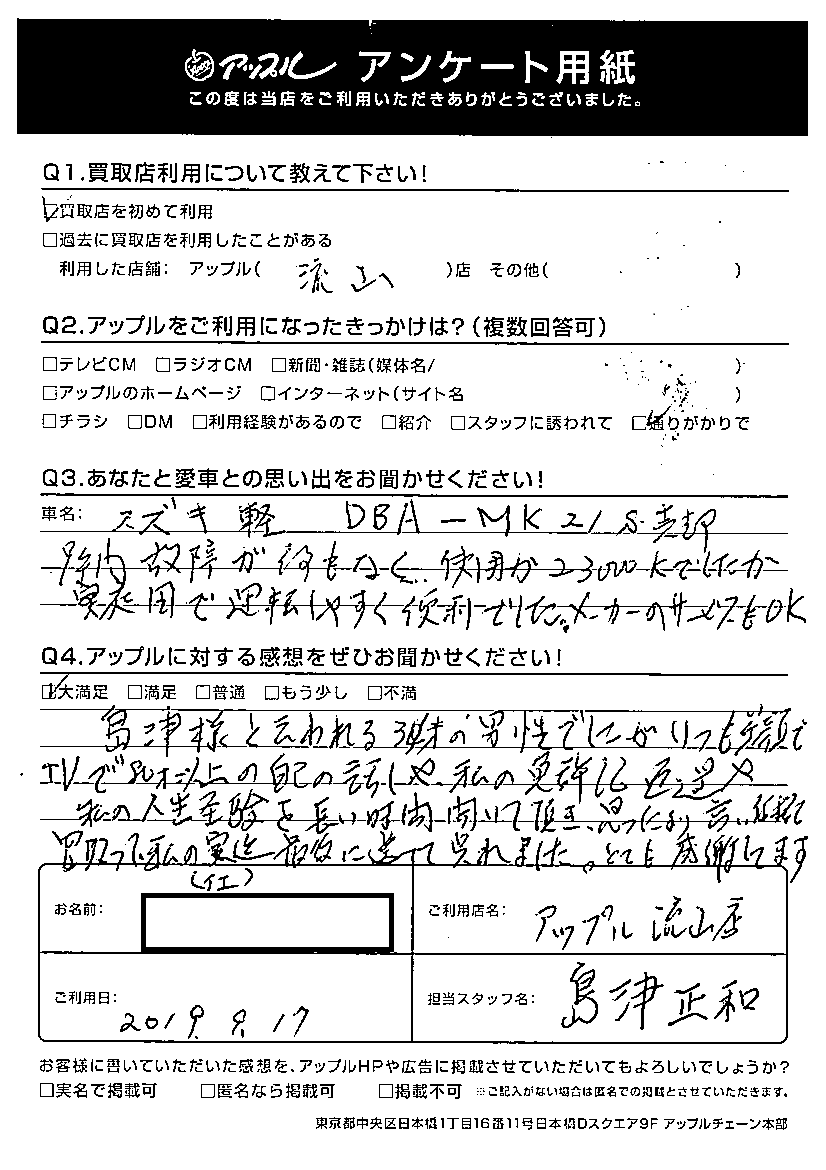 アップル アンケート用紙
この度は当店をご利用いただきありがとうございました。
Q1.買取店利用について教えて下さい！
☑買取店を初めて利用
□過去に買取店を利用したことがある
利用した店舗： アップル( 流山 )店 その他( )
Q2.アップルをご利用になったきっかけは？(複数回答可)
□テレビCM □ラジオCM □新聞・雑誌(媒体名/ )
□アップルのホームページ □インターネット(サイト名 )
□チラシ □DM □利用経験があるので □紹介 □スタッフに誘われて ☑通りがかりで
Q3.あなたと愛車との思い出をお聞かせください！
車名： スズキ 軽 DBA-MK21S
故障が何もなく、使用が23000Kでしたが
実用で運転しやすく便利でした。メーカーのサービスもOK
Q4.アップルに対する感想をぜひお聞かせください！
☑大満足 □満足 □普通 □もう少し □不満
島津様と云われる 男性でしたがいつも笑顔で
以上の自己の話しや、私の
私の人生経験を長い時間聞いて頂き、思ったより
買取って私の 最後に送って呉れました。とても感謝してます
(イエ)
お名前：
ご利用店名： アップル 流山店
ご利用日： 2019. 9. 17
担当スタッフ名： 島津正和
お客様に書いていただいた感想を、アップルHPや広告に掲載させていただいてもよろしいでしょうか？
□実名で掲載可 □匿名なら掲載可 □掲載不可 ※ご記入がない場合は匿名での掲載とさせていただきます。
東京都中央区日本橋1丁目16番11号日本橋Dスクエア9F アップルチェーン本部